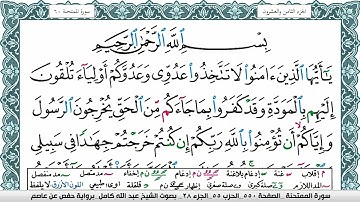 الجزء الثامن والعشرون
سورة الممتحنة ٦٠
بِسْمِ اللَّهِ الرَّحْمَٰنِ الرَّحِيمِ
يَا أَيُّهَا الَّذِينَ ءَامَنُوا لَا تَتَّخِذُوا عَدُوِّى وَعَدُوَّكُمْ أَوْلِيَاءَ تُلْقُونَ
إِلَيْهِم بِالْمَوَدَّةِ وَقَدْ كَفَرُوا بِمَا جَاءَكُم مِّنَ الْحَقِّ يُخْرِجُونَ الرَّسُولَ
وَإِيَّاكُمْ أَن تُؤْمِنُوا بِاللَّهِ رَبِّكُمْ إِن كُنتُمْ خَرَجْتُمْ جِهَادًا فِى سَبِيلِى
سورة الممتحنة - الصفحة ٥٥٠ - الحزب ٥٥ - الجزء ٢٨ - بصوت الشيخ عبد الله كامل - برواية حفص عن عاصم